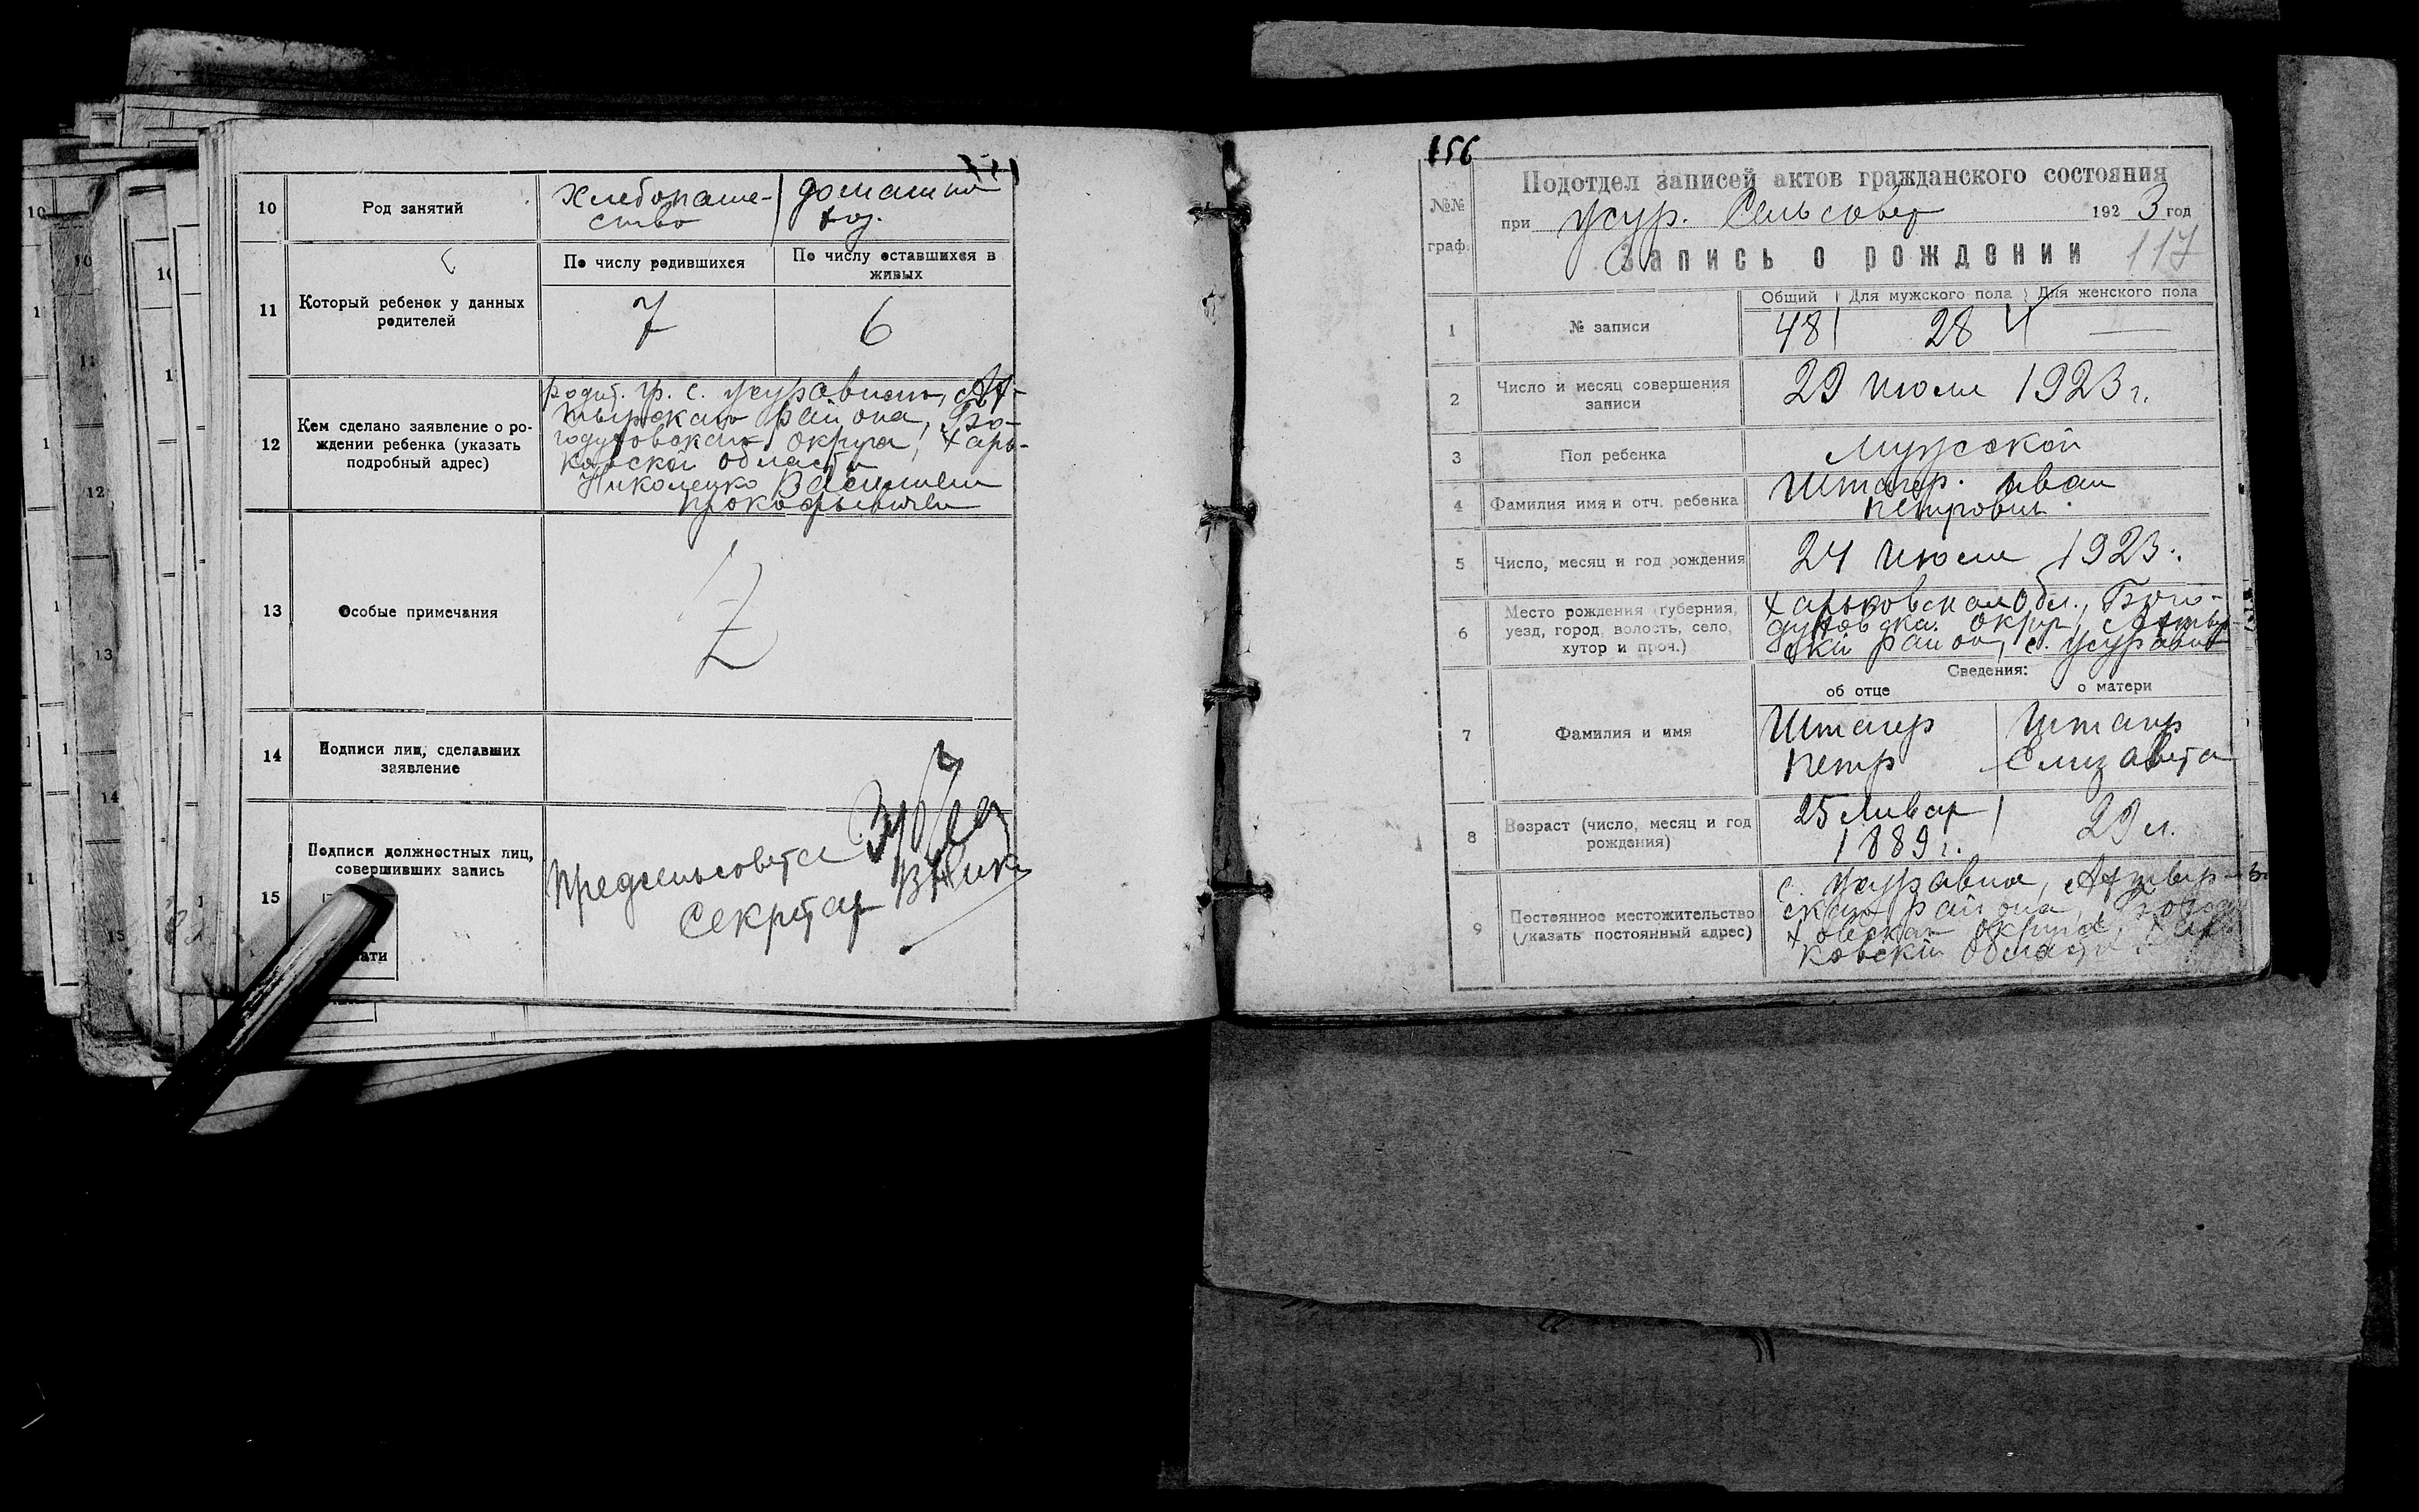 10 Род занятий Хлебопаше- домашн
ство хоз.
11 Который ребенок у данных родителей
По числу родившихся По числу оставшихся в живых
7 6
12 Кем сделано заявление о ро-
ждении ребенка (указать
подробный адрес)
родит. гр. с. Журавного, Ах-
тырского района, Бо-
годуховского округа, Харь-
ковской области
Николенко Василием
Прокофьевичем
13 Особые примечания
Z
14 Подписи лиц, сделавших
заявление
15 Подписи должностных лиц,
совершивших запись
Предсельсовета
Секретар
156
№№
граф.
Подотдел записей актов гражданского состояния
при Жур. Сельсовет 1923 год
Запись о рождении 117
Общий Для мужского пола Для женского пола
1 № записи 48 28 —
2 Число и месяц совершения
записи
29 Июля 1923 г.
3 Пол ребенка Мужской
4 Фамилия имя и отч. ребенка Штагер. Иван
Петрович.
5 Число, месяц и год рождения 24 Июля 1923.
6 Место рождения (губерния,
уезд, город, волость, село,
хутор и проч.)
Харьковская Обл., Бого-
духовска. Округ, Ахтыр
ский район, с. Журавное
Сведения:
об отце о матери
7 Фамилия и имя
Штагер Штагер
Петр Елизавета
8 Возраст (число, месяц и год
рождения)
25 Январ 29 л.
1889 г.
9 Постоянное местожительство
(указать постоянный адрес)
с. Журавное, Ахтыр-
ского района, Богоду
ховского округа, Харь
ковской области